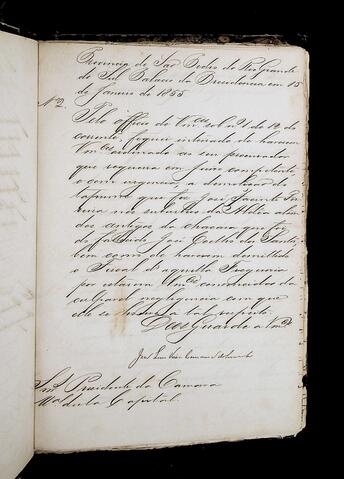 Provincia de São Pedro do Rio Grande
do Sul Palacio da Presidencia em 15
de Janeiro de 1855
Nº 2.
Pelo officio de Vmces sob nº 1 de 12 do
corrente, fiquei inteirado de haverem
Vmces ordenado ao seu procurador
que requeira em Juizo competente
e com urgencia, a demolição do
tapume que fez José Jacinto
nos suburbios da Aldeia
dos antigos da chacara que foi
do fallecido José Coelho dos Santos,
bem como de haverem demittido
o Fiscal d'aquella Freguezia
por estarem Vmces convencidos da
culpavel negligencia com que
elle se a tal respeito.
Deos Guarde a Vmces
Snr. Presidente da Camara
Mal desta Capital.